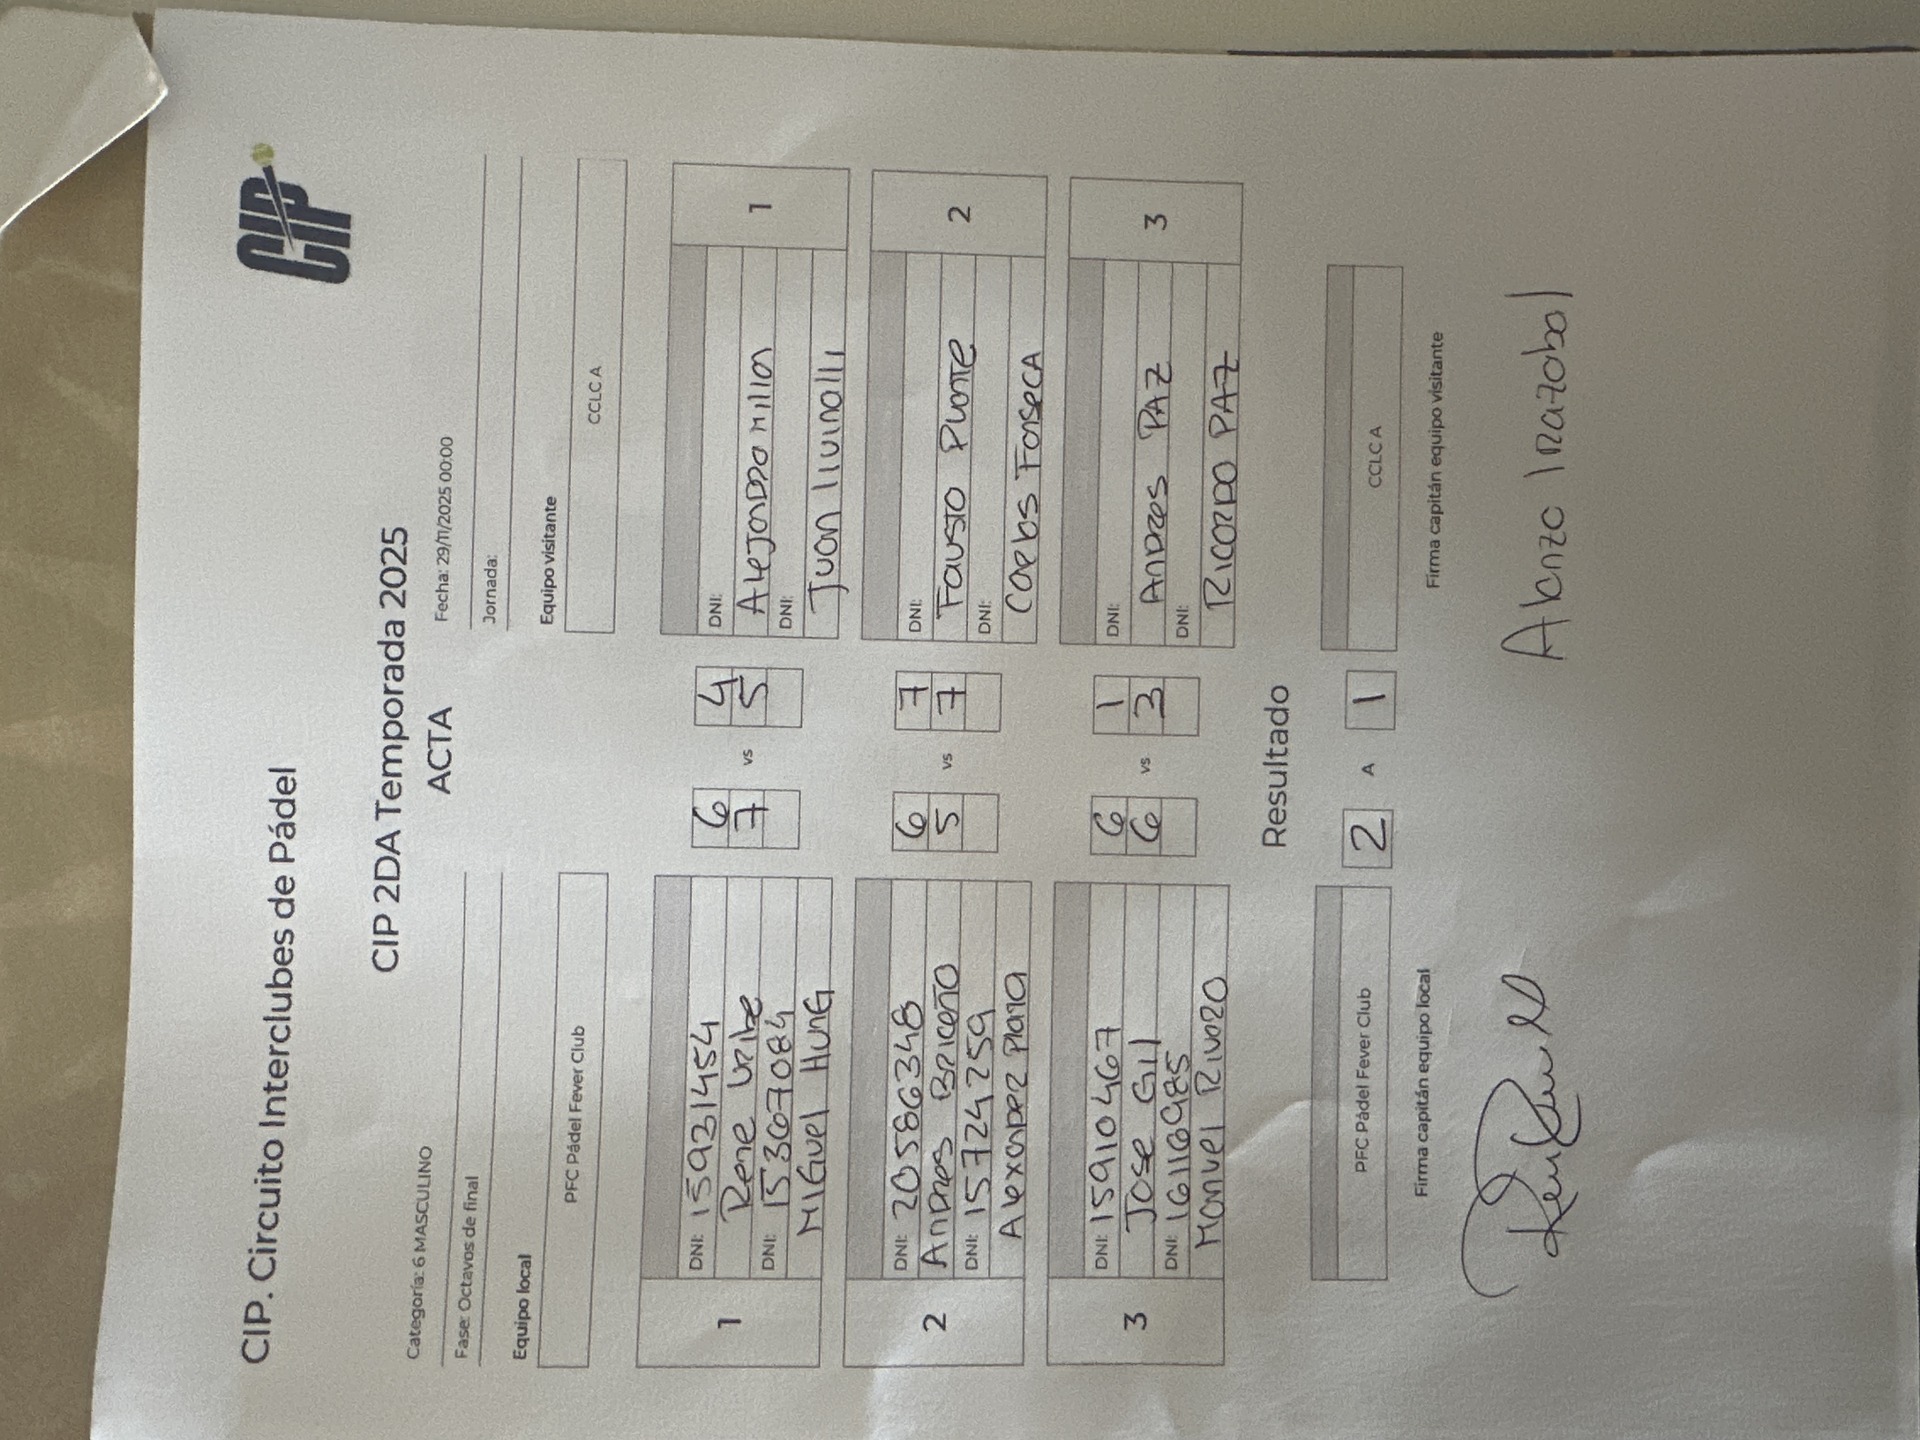 CIP. Circuito Interclubes de Pádel
CIP
CIP 2DA Temporada 2025
ACTA
Categoría: 6 MASCULINO
Fecha: 29/11/2025 00:00
Fase: Octavos de final
Jornada:
Equipo local
Equipo visitante
PFC Pádel Fever Club
CCLC A
1
DNI: 15931454
Rene Uribe
DNI: 15367084
Miguel Hung
6 vs 4
7 5
DNI:
Alejandro Millan
DNI:
Juan
1
2
DNI: 20586348
Andres Briceño
DNI: 15724259
Alexander Plana
6 vs 7
5 7
DNI:
Fausto
DNI:
Carlos Fonseca
2
3
DNI: 15910467
Jose Gil
DNI: 16116985
Manuel Rivero
6 vs 1
6 3
DNI:
Andres PAZ
DNI:
Ricardo PAZ
3
Resultado
PFC Pádel Fever Club
2 A 1
CCLC A
Firma capitán equipo local
Firma capitán equipo visitante